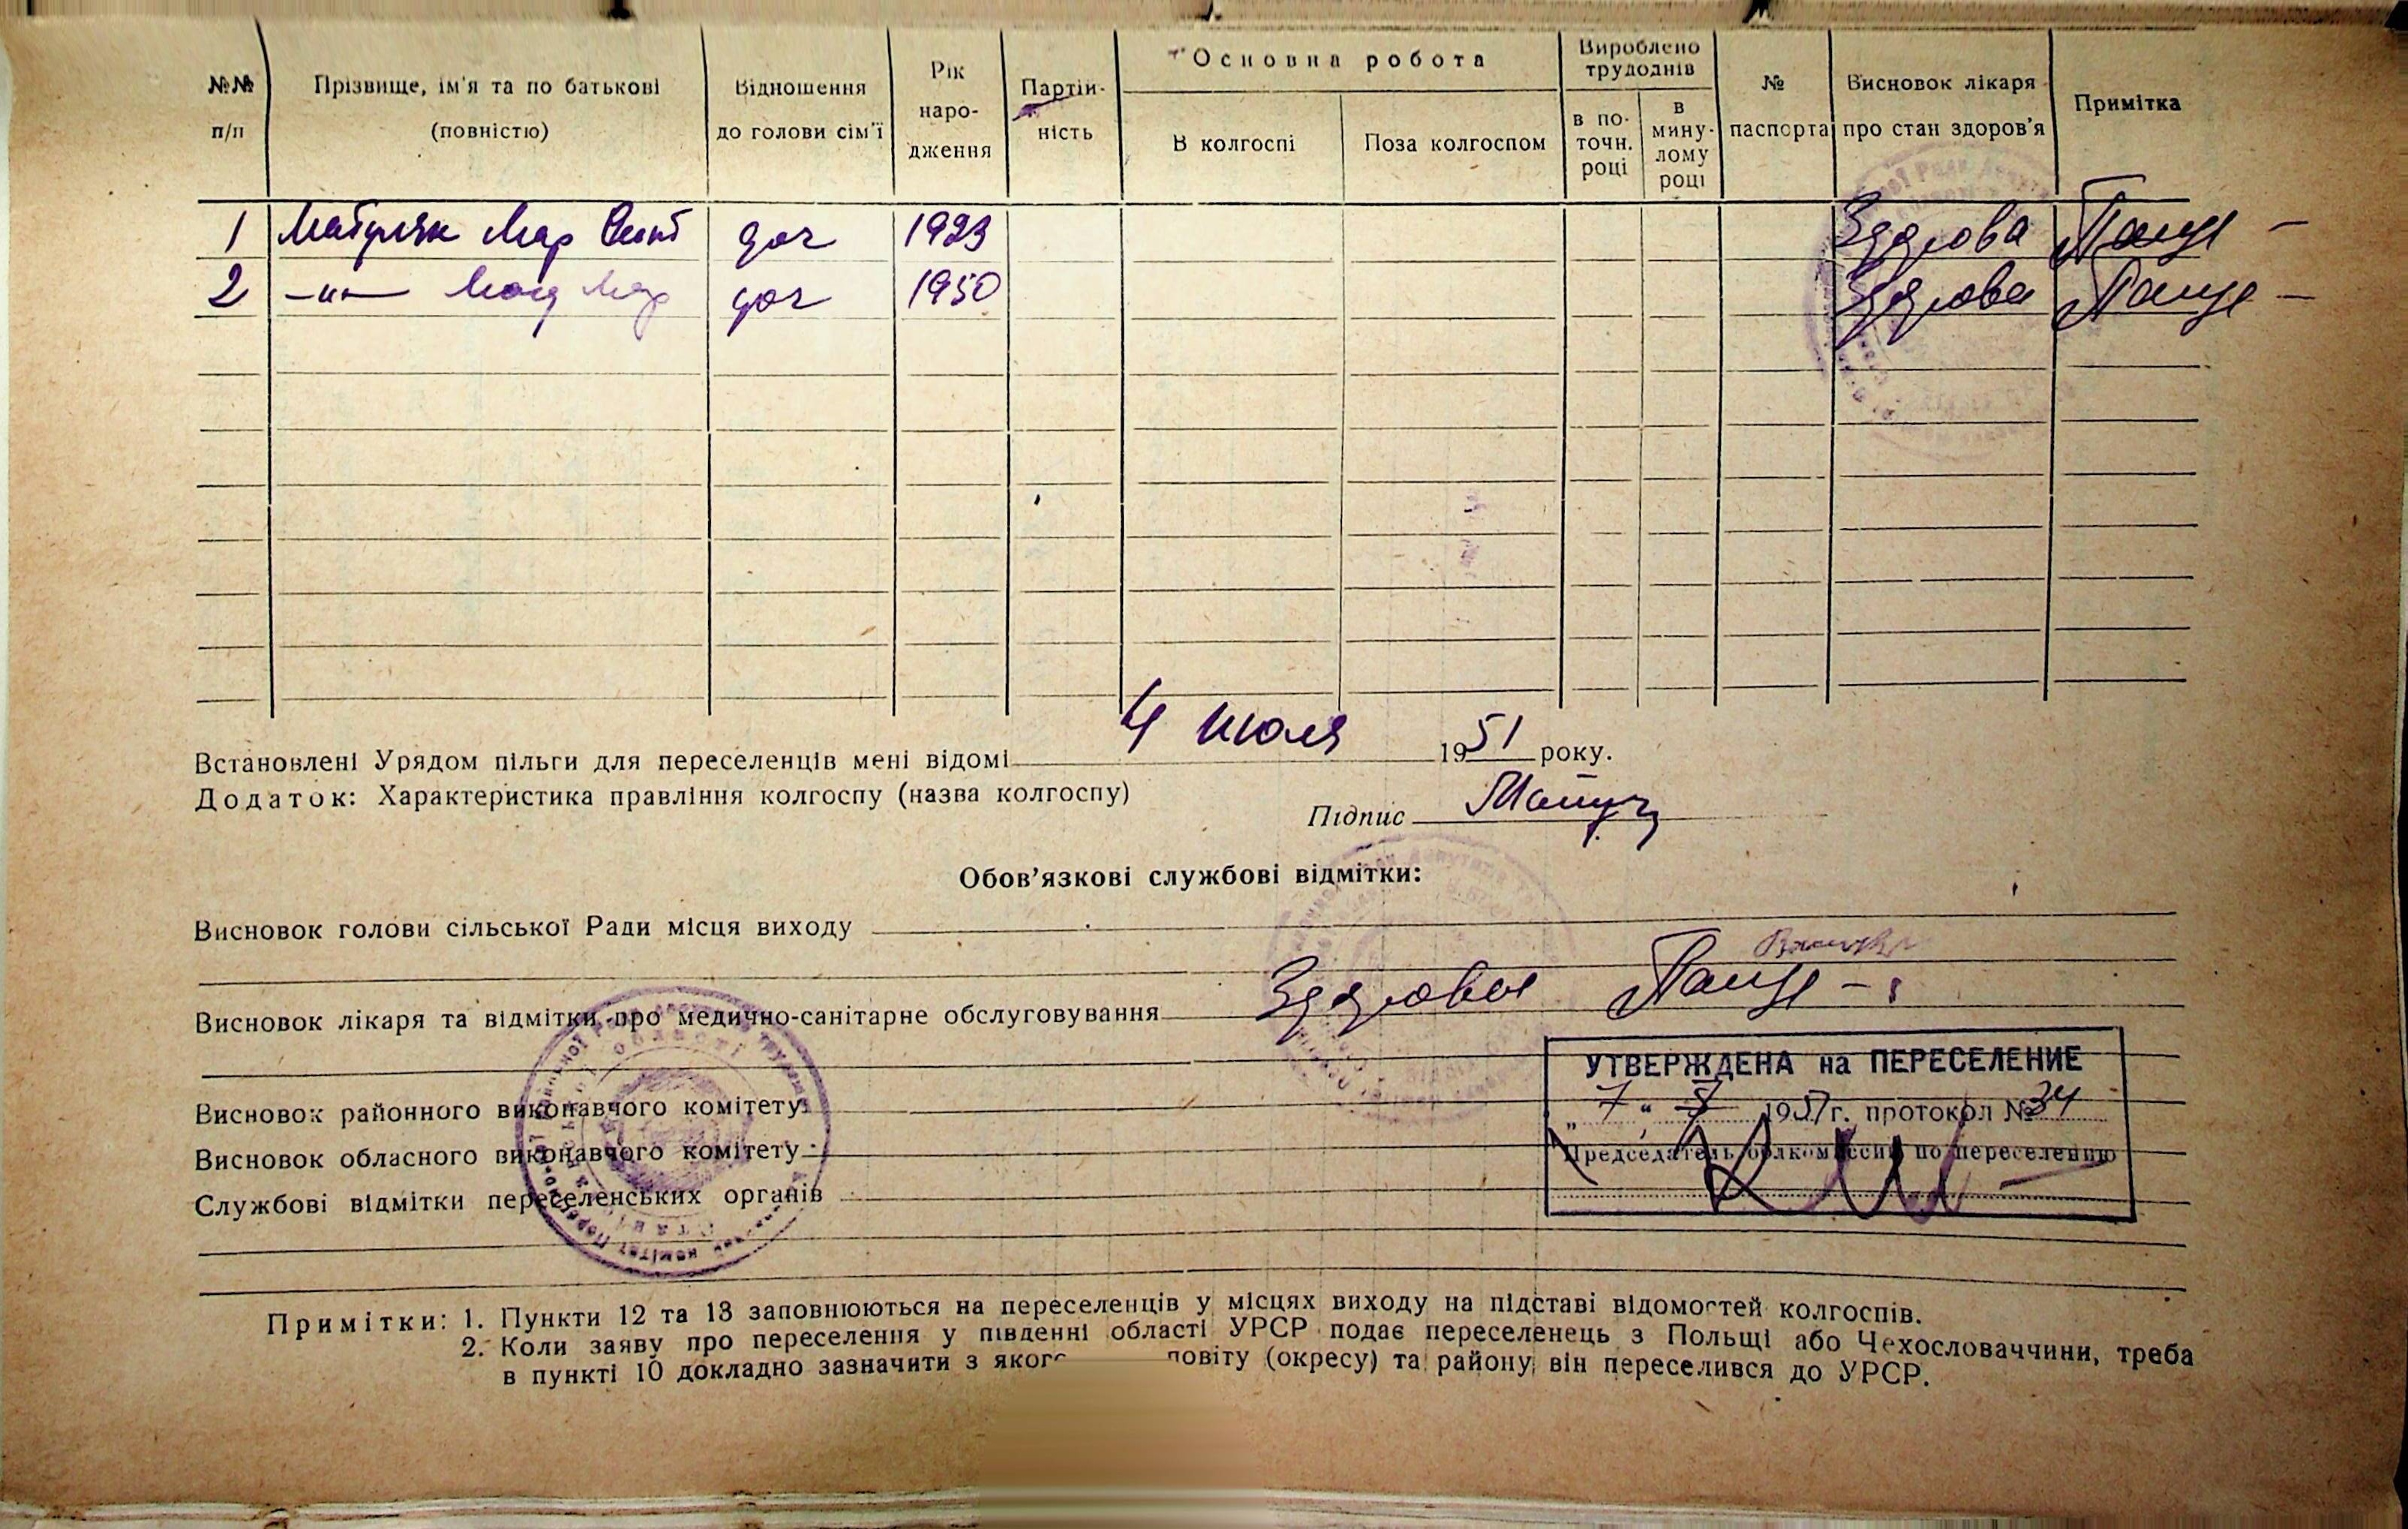 №№ п/п
Прізвище, ім'я та по батькові (повністю)
Відношення до голови сім'ї
Рік наро-дження
Партій-ність
Основна робота
В колгоспі
Поза колгоспом
Вироблено трудоднів
в по-точн. році
в мину-лому році
№ паспорта
Висновок лікаря про стан здоров'я
Примітка
1 Мар доч 1923 Здорова
2 —〃— дочь 1950 Здорова
Встановлені Урядом пільги для переселенців мені відомі 4 июля 1951 року.
Додаток: Характеристика правління колгоспу (назва колгоспу)
Підпис
Обов'язкові службові відмітки:
Висновок голови сільської Ради місця виходу
Висновок лікаря та відмітки про медично-санітарне обслуговування Здоровы
УТВЕРЖДЕНА на ПЕРЕСЕЛЕНИЕ
„7" 7 1951 г. протокол № 34
Председатель облкомиссии по переселению
Висновок районного виконавчого комітету
Висновок обласного виконавчого комітету
Службові відмітки переселенських органів
Примітки: 1. Пункти 12 та 13 заповнюються на переселенців у місцях виходу на підставі відомостей колгоспів.
2. Коли заяву про переселення у південні області УРСР подає переселенець з Польщі або Чехословаччини, треба
в пункті 10 докладно зазначити з якого повіту (окресу) та району він переселився до УРСР.